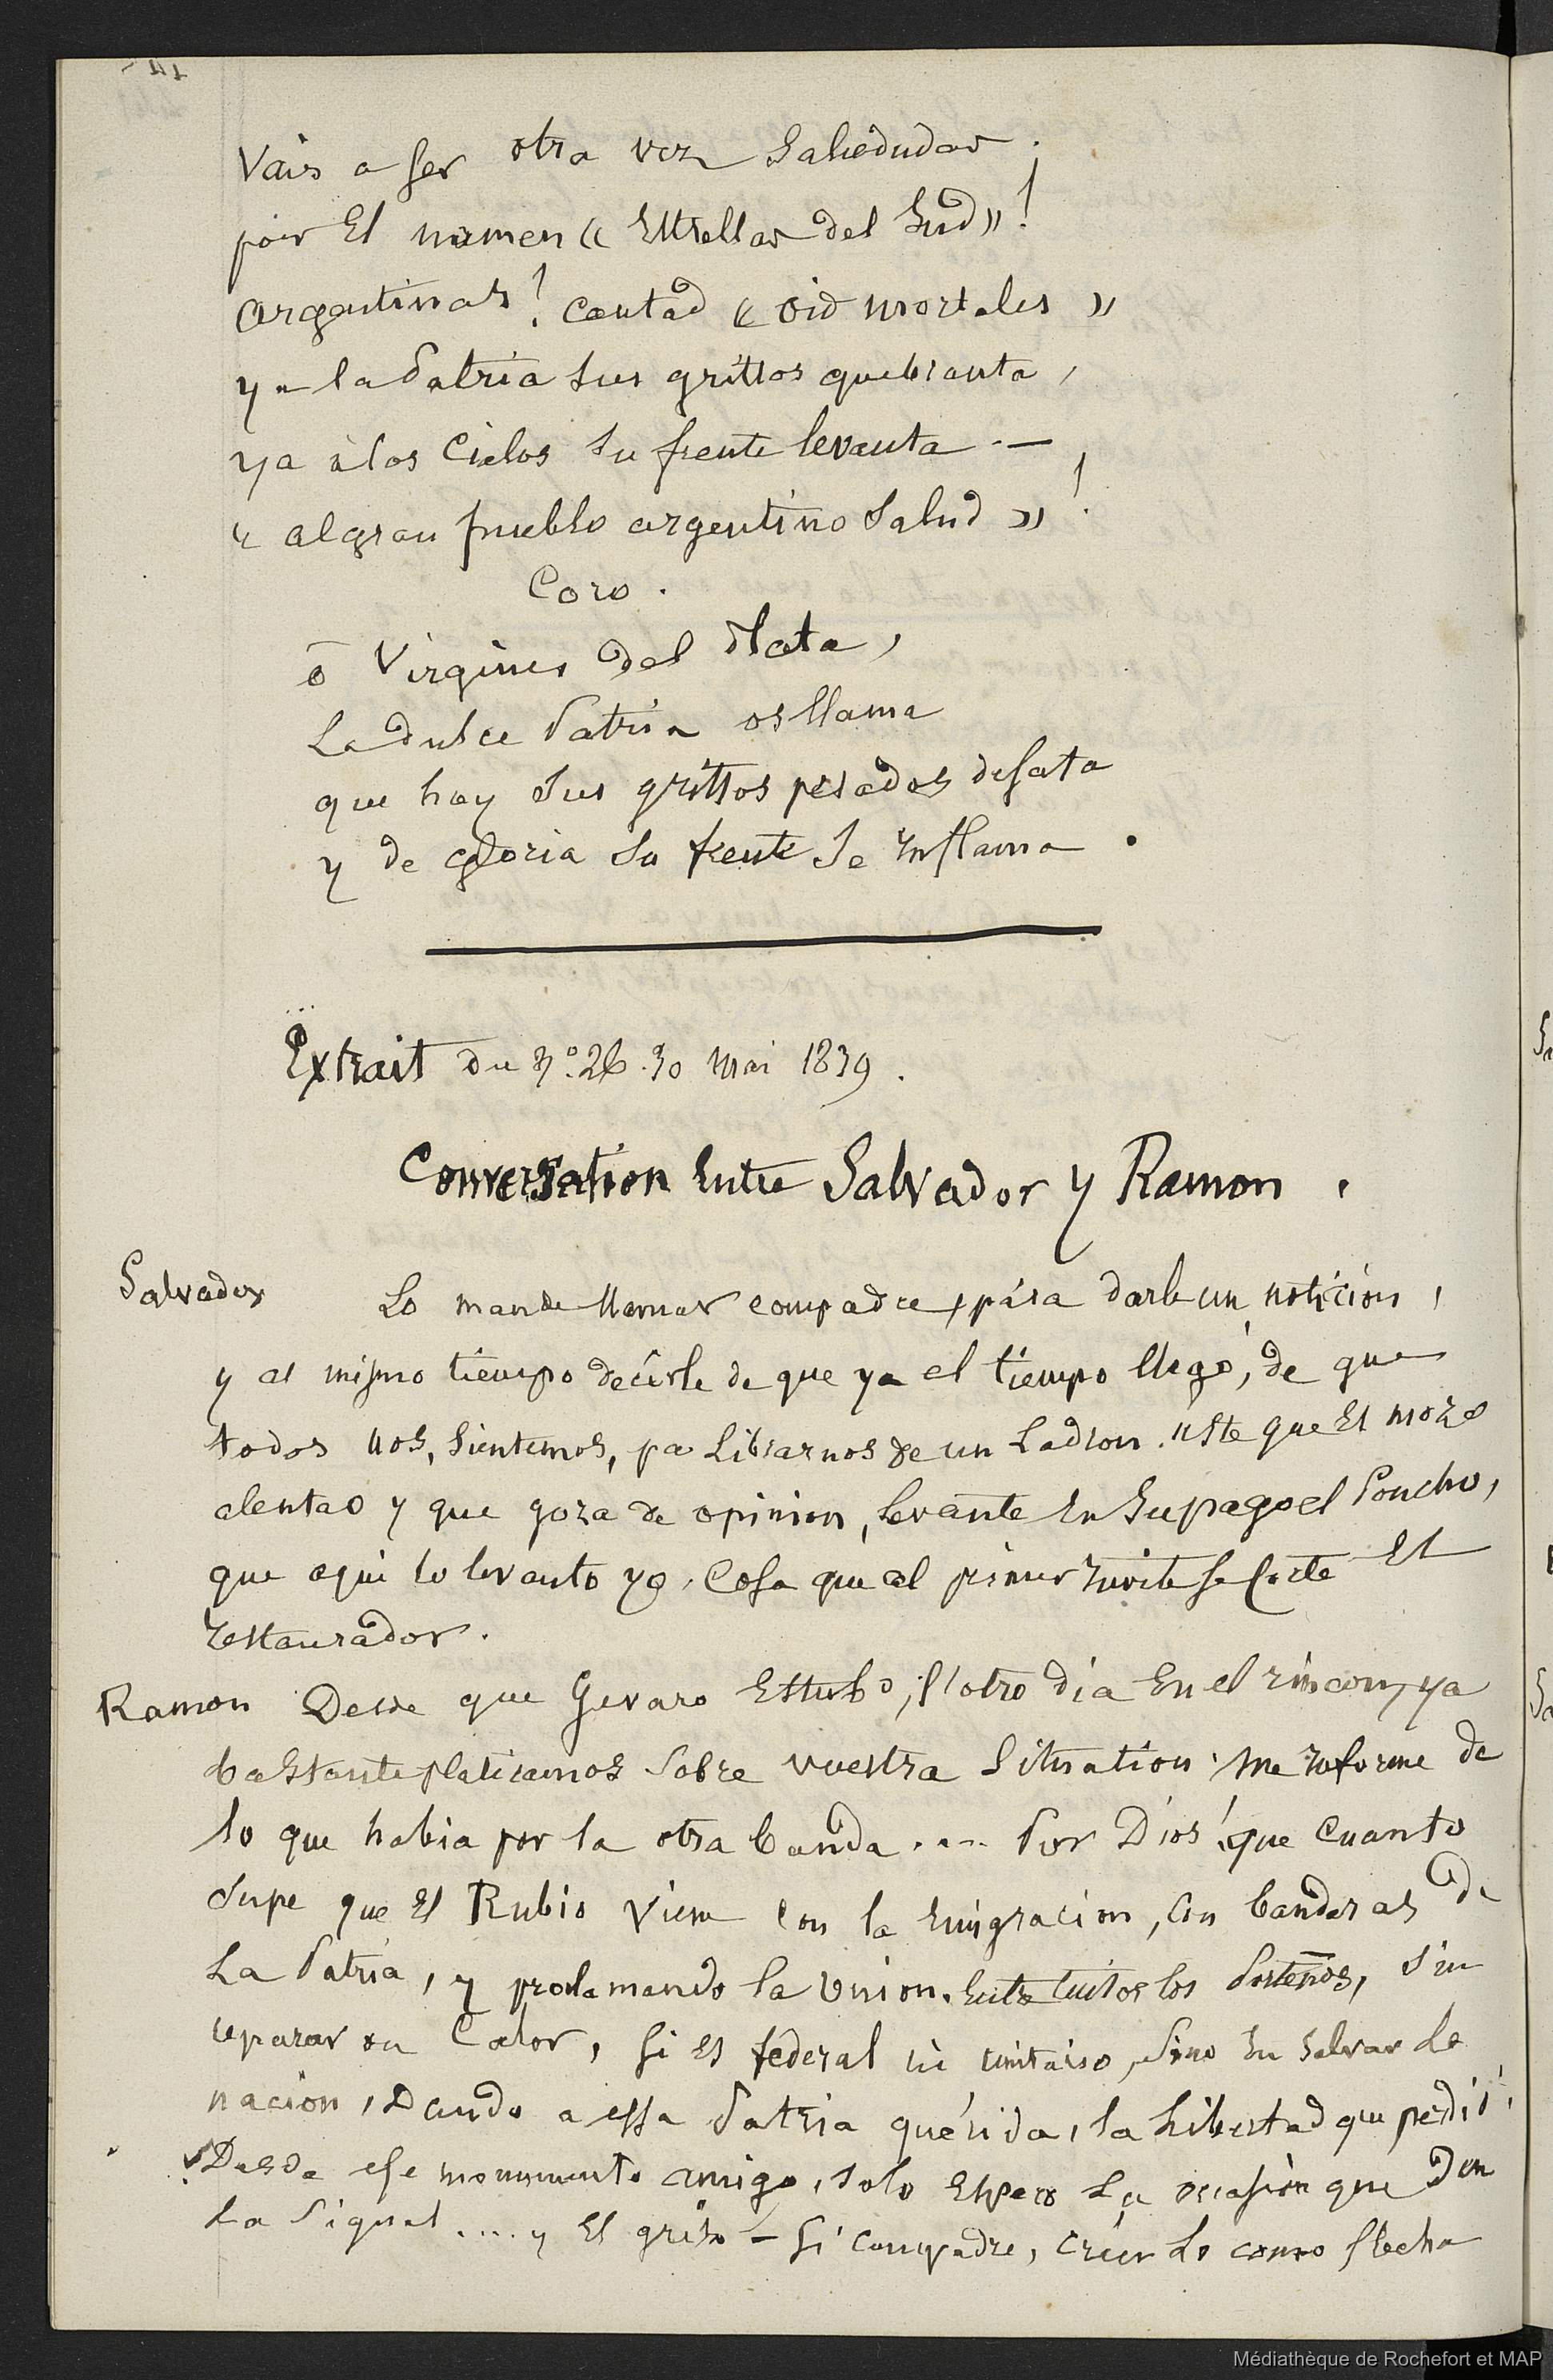 Vais a ser otra vez saludadas.
por El numen « Estrellas del Sud »!
argentinas! cantad « oid mortales »
ya la Patria sus grillos quebranta,
ya à los Cielos su frente levanta —
« al gran pueblo argentino salud »!
Coro.
ô Virgines del Plata,
La dulce Patria os llama
que hoy sus grillos pesados desata
y de gloria su frente se inflama.
Extrait du Nº. 26. 30 mai 1839.
Conversation Entre Salvador y Ramon.
Salvador Lo mande llamar compadre, pára darle un noticion,
y al mismo tiempo decirle de que ya el tiempo llegó, de que
todos nos, sientemos, pa librarnos de un Ladron. Uste que Es mozo
alentao y que goza de opinion, levante En Su pago el Poncho,
que aqui lo levanto yo. Cosa que al primer Envite se corte El
restaurador.
Ramon Desde que Genaro Estubo, l'otro dia En el rincon, ya
bastante platicamos sobre nuestra Situation. me informe de
lo que habia por la otra banda .... Por Dios! que cuanto
supe que El Rubio viene con la Emigracion, con banderas de
La Patria, y proclamando la Union. Entre tuitos los Porteños, sin
reparar en Calor, si es federal ni unitario, sino En salvar La
nacion, Dando a essa Patria quérida, la Libertad que perdió.
Desde ese monumento amigo, solo Espero La occasion que Den
La Signal .... y El grito — Si compadre, créer lo como flecha
Médiathèque de Rochefort et MAP